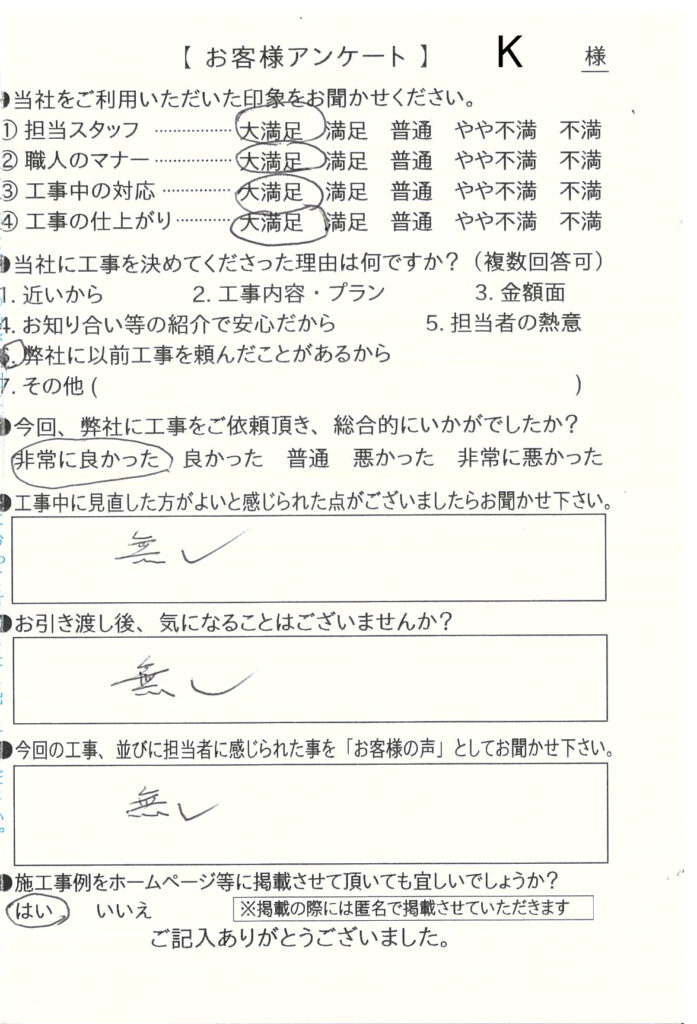 【 お客様アンケート 】 K 様
●当社をご利用いただいた印象をお聞かせください。
① 担当スタッフ ……………… 大満足 満足 普通 やや不満 不満
② 職人のマナー ……………… 大満足 満足 普通 やや不満 不満
③ 工事中の対応 ……………… 大満足 満足 普通 やや不満 不満
④ 工事の仕上がり …………… 大満足 満足 普通 やや不満 不満
●当社に工事を決めてくださった理由は何ですか？（複数回答可）
1. 近いから 2. 工事内容・プラン 3. 金額面
4. お知り合い等の紹介で安心だから 5. 担当者の熱意
6. 弊社に以前工事を頼んだことがあるから
7. その他 ( )
●今回、弊社に工事をご依頼頂き、総合的にいかがでしたか？
非常に良かった 良かった 普通 悪かった 非常に悪かった
●工事中に見直した方がよいと感じられた点がございましたらお聞かせ下さい。
無し
●お引き渡し後、気になることはございませんか？
無し
●今回の工事、並びに担当者に感じられた事を「お客様の声」としてお聞かせ下さい。
無し
●施工事例をホームページ等に掲載させて頂いても宜しいでしょうか？
はい いいえ ※掲載の際には匿名で掲載させていただきます
ご記入ありがとうございました。